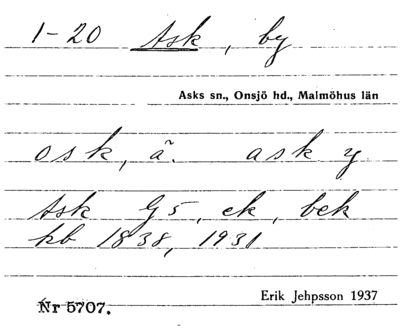 1-20 Ask, by
Asks sn., Onsjö hd., Malmöhus län
osk, ã. ask y
Ask G 5, ek, bek
kb 1838, 1931
Erik Jehpsson 1937
Nr 5707.